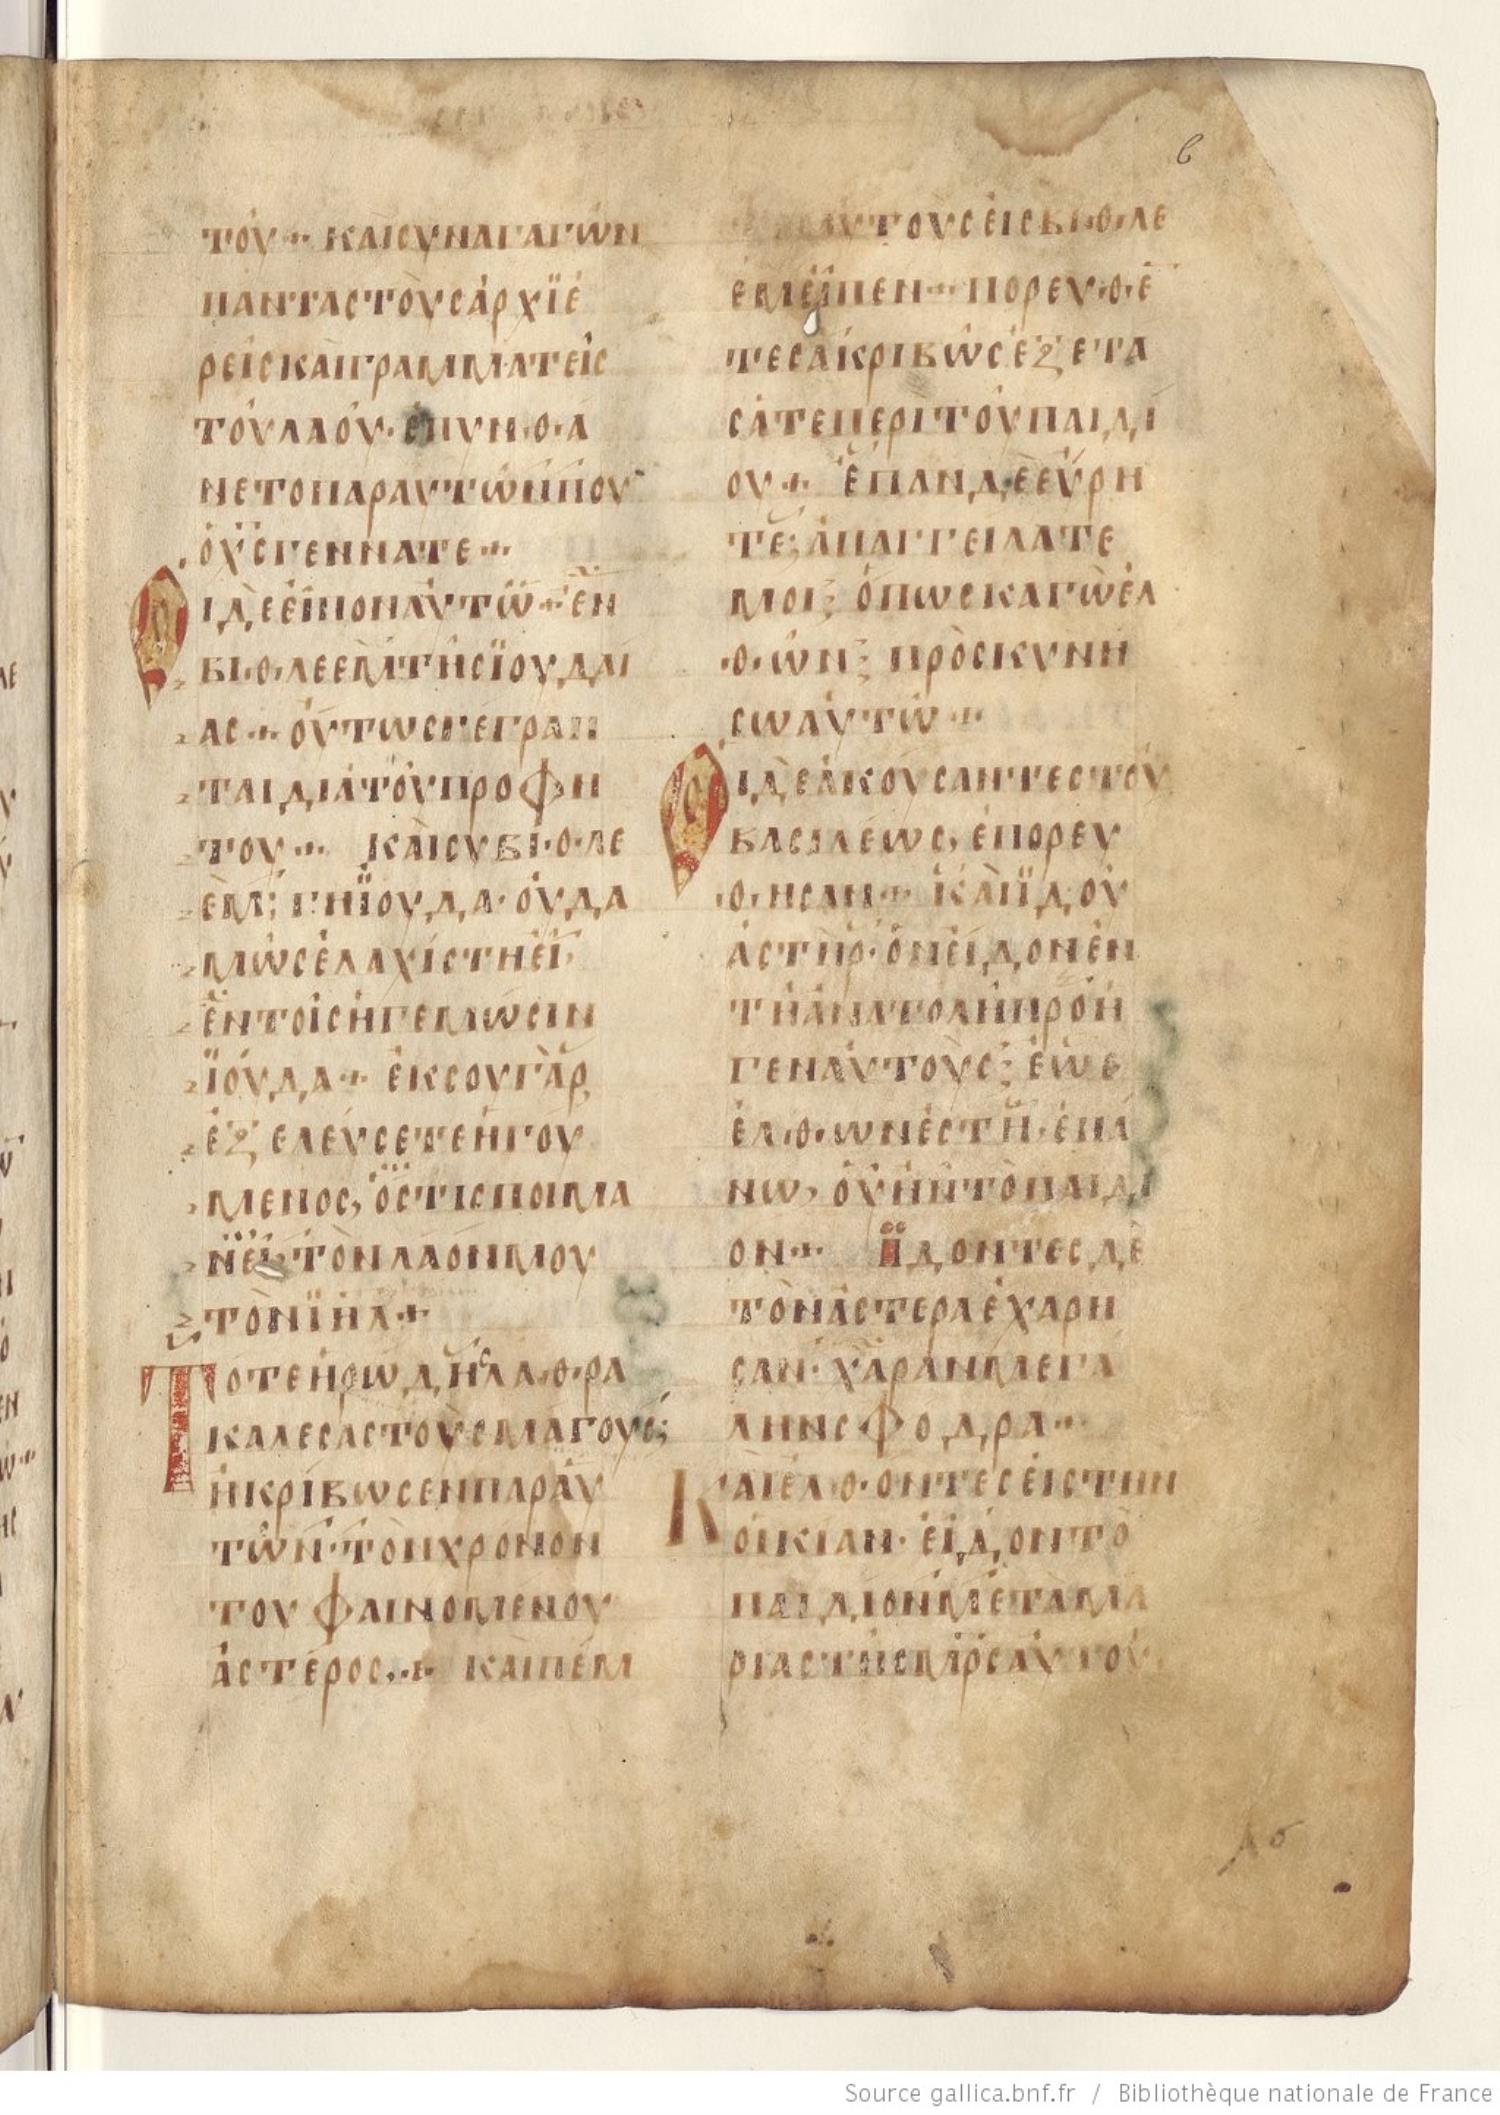 6
ΤΟΥ·:· ΚΑΙCΥΝΑΓΑΓΩΝ
ΠΑΝΤΑCΤΟΥCΑΡΧΪΕ
ΡΕΙCΚΑΙΓΡΑΜΜΑΤΕΙC
ΤΟΥΛΑΟΥ· ΕΠΥΝΘΑ
ΝΕΤΟΠΑΡΑΥΤΩΝΠΟΥ
ΟΧ̅CΓΕΝΝΑΤΕ·:·
ΟΙΔΕΕΙΠΟΝΑΥΤΩ·:· ΕΝ
ΒΙΘΛΕΕΜΤΗCΪΟΥΔΑΙ
ΑC·:· ΟΥΤΩCΓΕΓΡΑΠ
ΤΑΙΔΙΑΤΟΥΠΡΟΦΗ
ΤΟΥ·:· ΚΑΙCΥΒΙΘΛΕ
ΕΜ; ΓΗΪΟΥΔΑ· ΟΥΔΑ
ΜΩCΕΛΑΧΙCΤΗΕΪ,
ΕΝΤΟΙCΗΓΕΜΩCΙΝ
ΪΟΥΔΑ·:· ΕΚCΟΥΓΑΡ
ΕΞΕΛΕΥCΕΤΕΗΓΟΥ
ΜΕΝΟC, ΟCΤΙCΠΟΙΜΑ
ΝΕΙΤΟΝΛΑΟΝΜΟΥ
ΤΟΝΪΗΛ·:·
ΤΟΤΕΗΡΩΔΗCΛΑΘΡΑ
ΚΑΛΕCΑCΤΟΥCΜΑΓΟΥC;
ΗΚΡΙΒΩCΕΝΠΑΡΑΥ
ΤΩΝ· ΤΟΝΧΡΟΝΟΝ
ΤΟΥΦΑΙΝΟΜΕΝΟΥ
ΑCΤΕΡΟC·:· ΚΑΙΠΕΜ
ΑΥΤΟΥCΕΙCΒΙΘΛΕ
ΕΜΕΙΠΕΝ·:· ΠΟΡΕΥΘΕ
ΤΕCΑΚΡΙΒΩCΕΞΕΤΑ
CΑΤΕΠΕΡΙΤΟΥΠΑΙΔΙ
ΟΥ·:· ΕΠΑΝΔΕΕΥΡΗ
ΤΕ; ΑΠΑΓΓΕΙΛΑΤΕ
ΜΟΙ; ΟΠΩCΚΑΓΩΕΛ
ΘΩΝ; ΠΡΟCΚΥΝΗ
CΩΑΥΤΩ·:·
ΟΙΔΕΑΚΟΥCΑΝΤΕCΤΟΥ
ΒΑCΙΛΕΩC, ΕΠΟΡΕΥ
ΘΗCΑΝ·:· ΚΑΙΪΔΟΥ
ΑCΤΗΡ· ΟΝΕΙΔΟΝΕΝ
ΤΗΑΝΑΤΟΛΗΠΡΟΗ
ΓΕΝΑΥΤΟΥC; ΕΩC
ΕΛΘΩΝΕCΤΗ· ΕΠΑ
ΝΩ, ΟΥΗΝΤΟΠΑΙΔΙ
ΟΝ·:· ΪΔΟΝΤΕCΔΕ
ΤΟΝΑCΤΕΡΑΕΧΑΡΗ
CΑΝ· ΧΑΡΑΝΜΕΓΑ
ΛΗΝCΦΟΔΡΑ·:·
ΚΑΙΕΛΘΟΝΤΕCΕΙCΤΗΝ
ΟΙΚΙΑΝ· ΕΙΔΟΝΤΟ
ΠΑΙΔΙΟΝΜΕΤΑΜΑ
ΡΙΑCΤΗCΜΡ̅CΑΥΤΟΥ
Source gallica.bnf.fr / Bibliothèque nationale de France